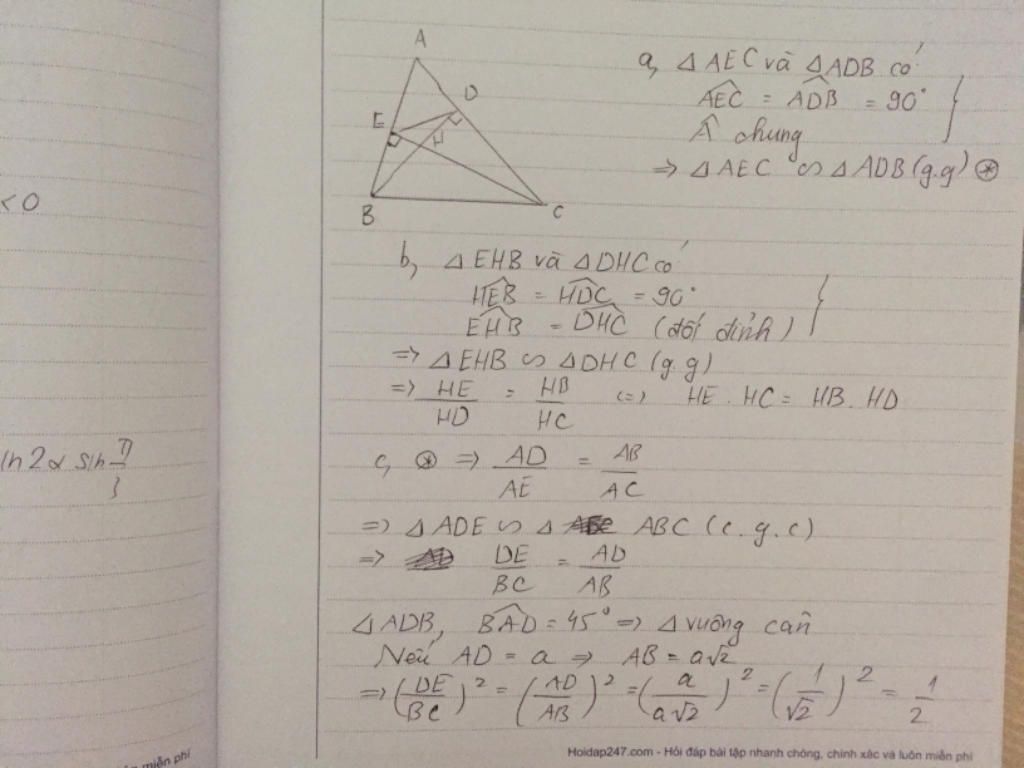 A
D
E
H
B
C
a, △AEC và △ADB có
AEC = ADB = 90°
 chung
=> △AEC ∽ △ADB (g.g) ⊛
< 0
b, △EHB và △DHC có
HEB = HDC = 90°
EHB = DHC (đối đỉnh)
=> △EHB ∽ △DHC (g.g)
=> HE/HD = HB/HC (=) HE . HC = HB . HD
c, ⊛ => AD/AE = AB/AC
in 2α sin
=> △ADE ∽ △ ABC (c.g.c)
=> DE/BC = AD/AB
△ADB, BAD = 45° => △ vuông cân
Nếu AD = a => AB = a√2
=> (DE/BC)² = (AD/AB)² = (a/a√2)² = (1/√2)² = 1/2
miễn phí
Hoidap247.com - Hỏi đáp bài tập nhanh chóng, chính xác và luôn miễn phí